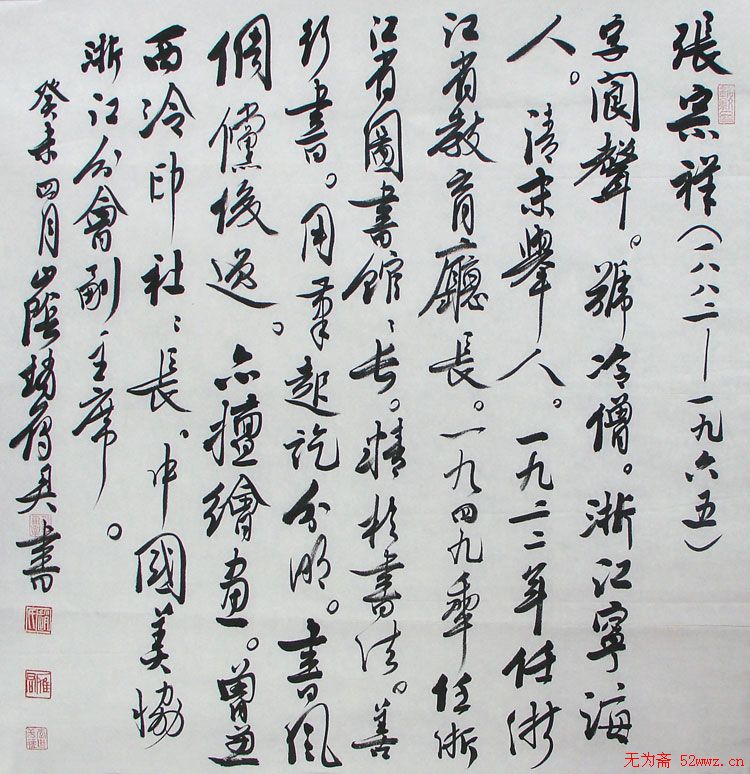 張宗祥（一八八二—一九六五）
字閬聲。號冷僧。浙江寧海
人。清末舉人。一九二二年任浙
江省教育廳長。一九四九年任浙
江省圖書館〻长。精於書法。善
行書。用筆起訖分明。書風
倜儻俊逸。亦擅繪畫。曾
西泠印社〻長、中國美協
浙江分會副主席。
癸未四月山陰書
无为斋 52wwz.cn